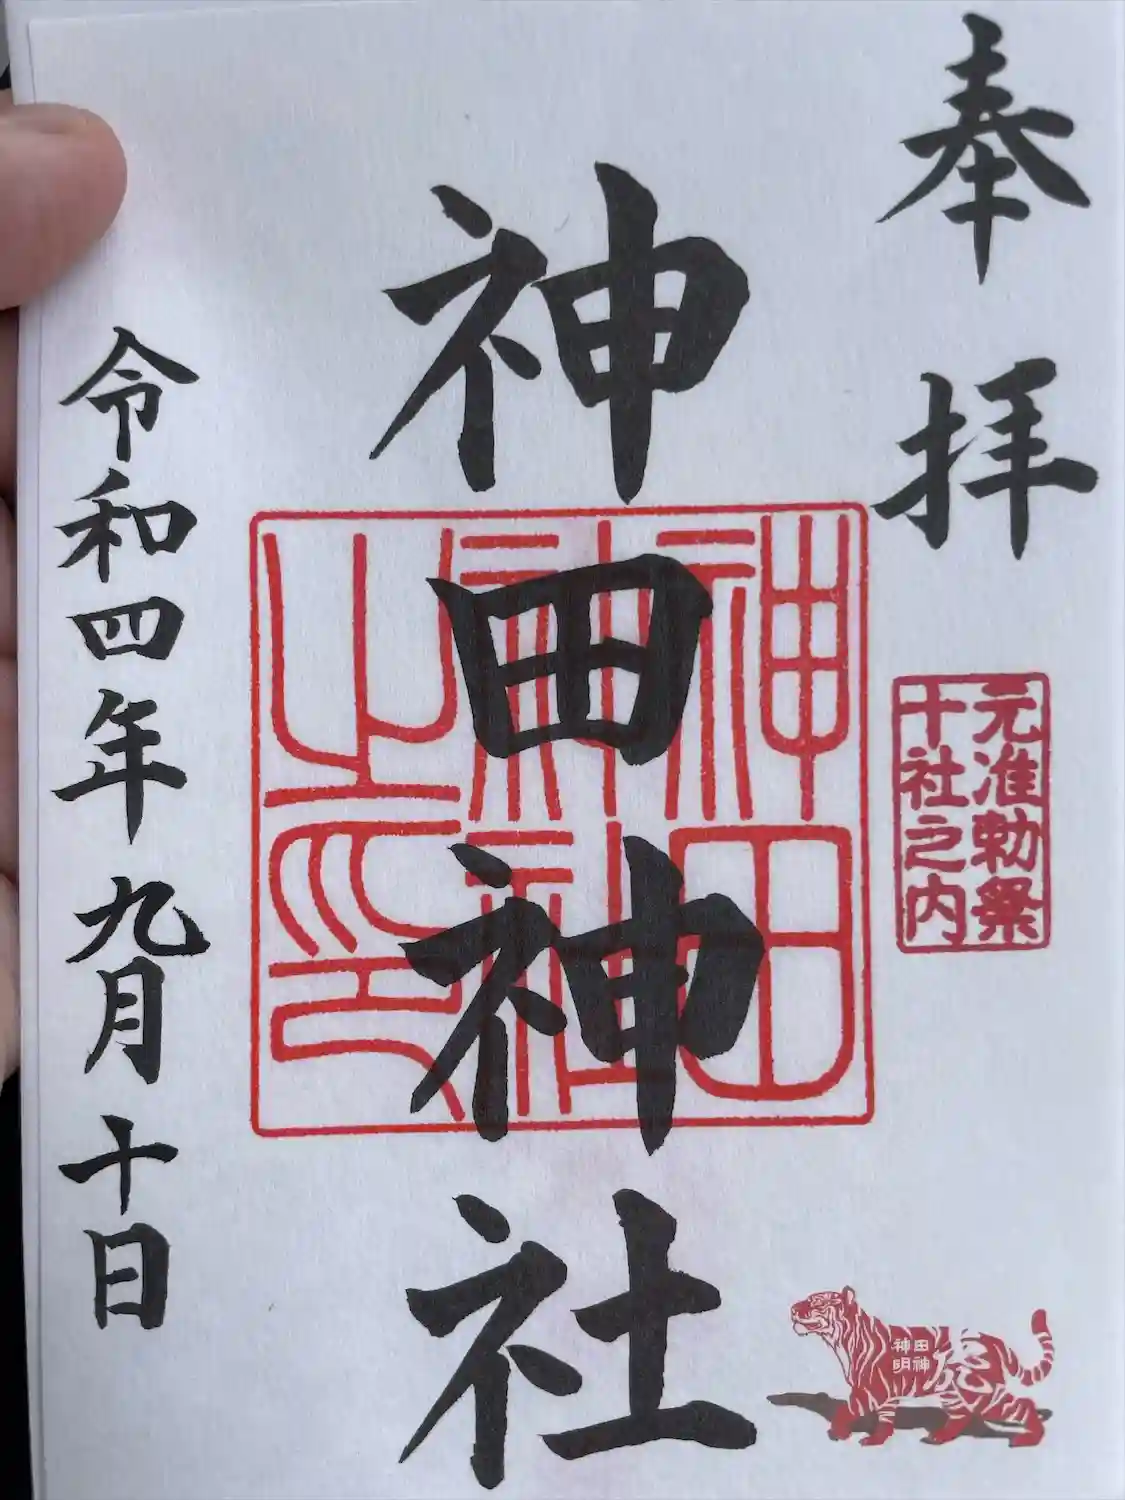 奉拝
元准勅祭
十社之内
神田神社
神田
神社
之印
令和四年九月十日
田神
神明
虎